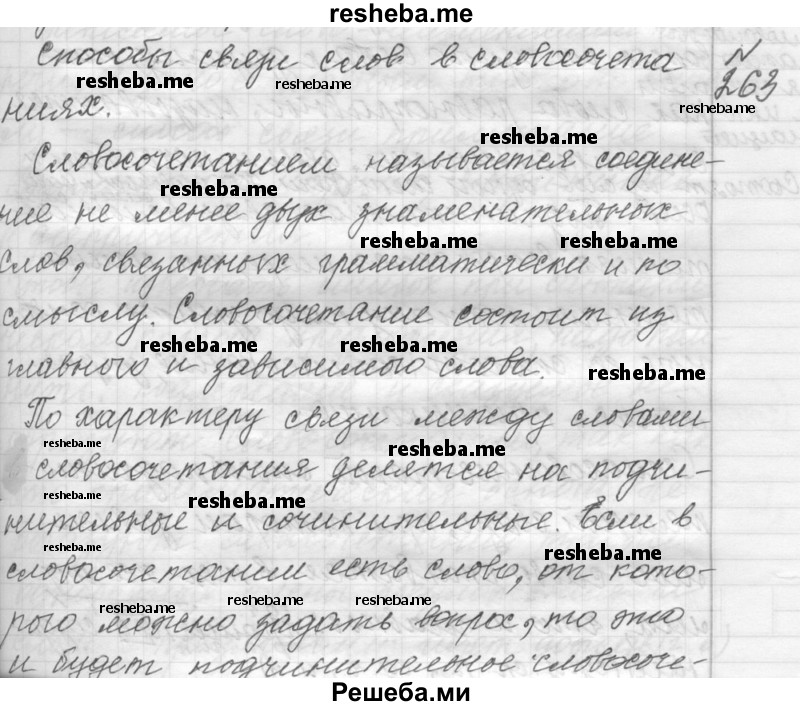 resheba.me
Способы связи слов в словосочета
№ 263
resheba.me
resheba.me
resheba.me
ниях.
resheba.me
Словосочетанием называется соедине-
resheba.me
ние не менее двух знаменательных
resheba.me resheba.me
слов, связанных грамматически и по
смыслу. Словосочетание состоит из
resheba.me resheba.me
главного и зависимого слова.
resheba.me
По характеру связи между словами
resheba.me
resheba.me
словосочетания делятся на подчи-
resheba.me
resheba.me
нительные и сочинительные. Если в
resheba.me
resheba.me
словосочетании есть слово, от кото-
resheba.me resheba.me resheba.me
рого можно задать вопрос, то это
и будет подчинительное словосоче-
Решеба.ми